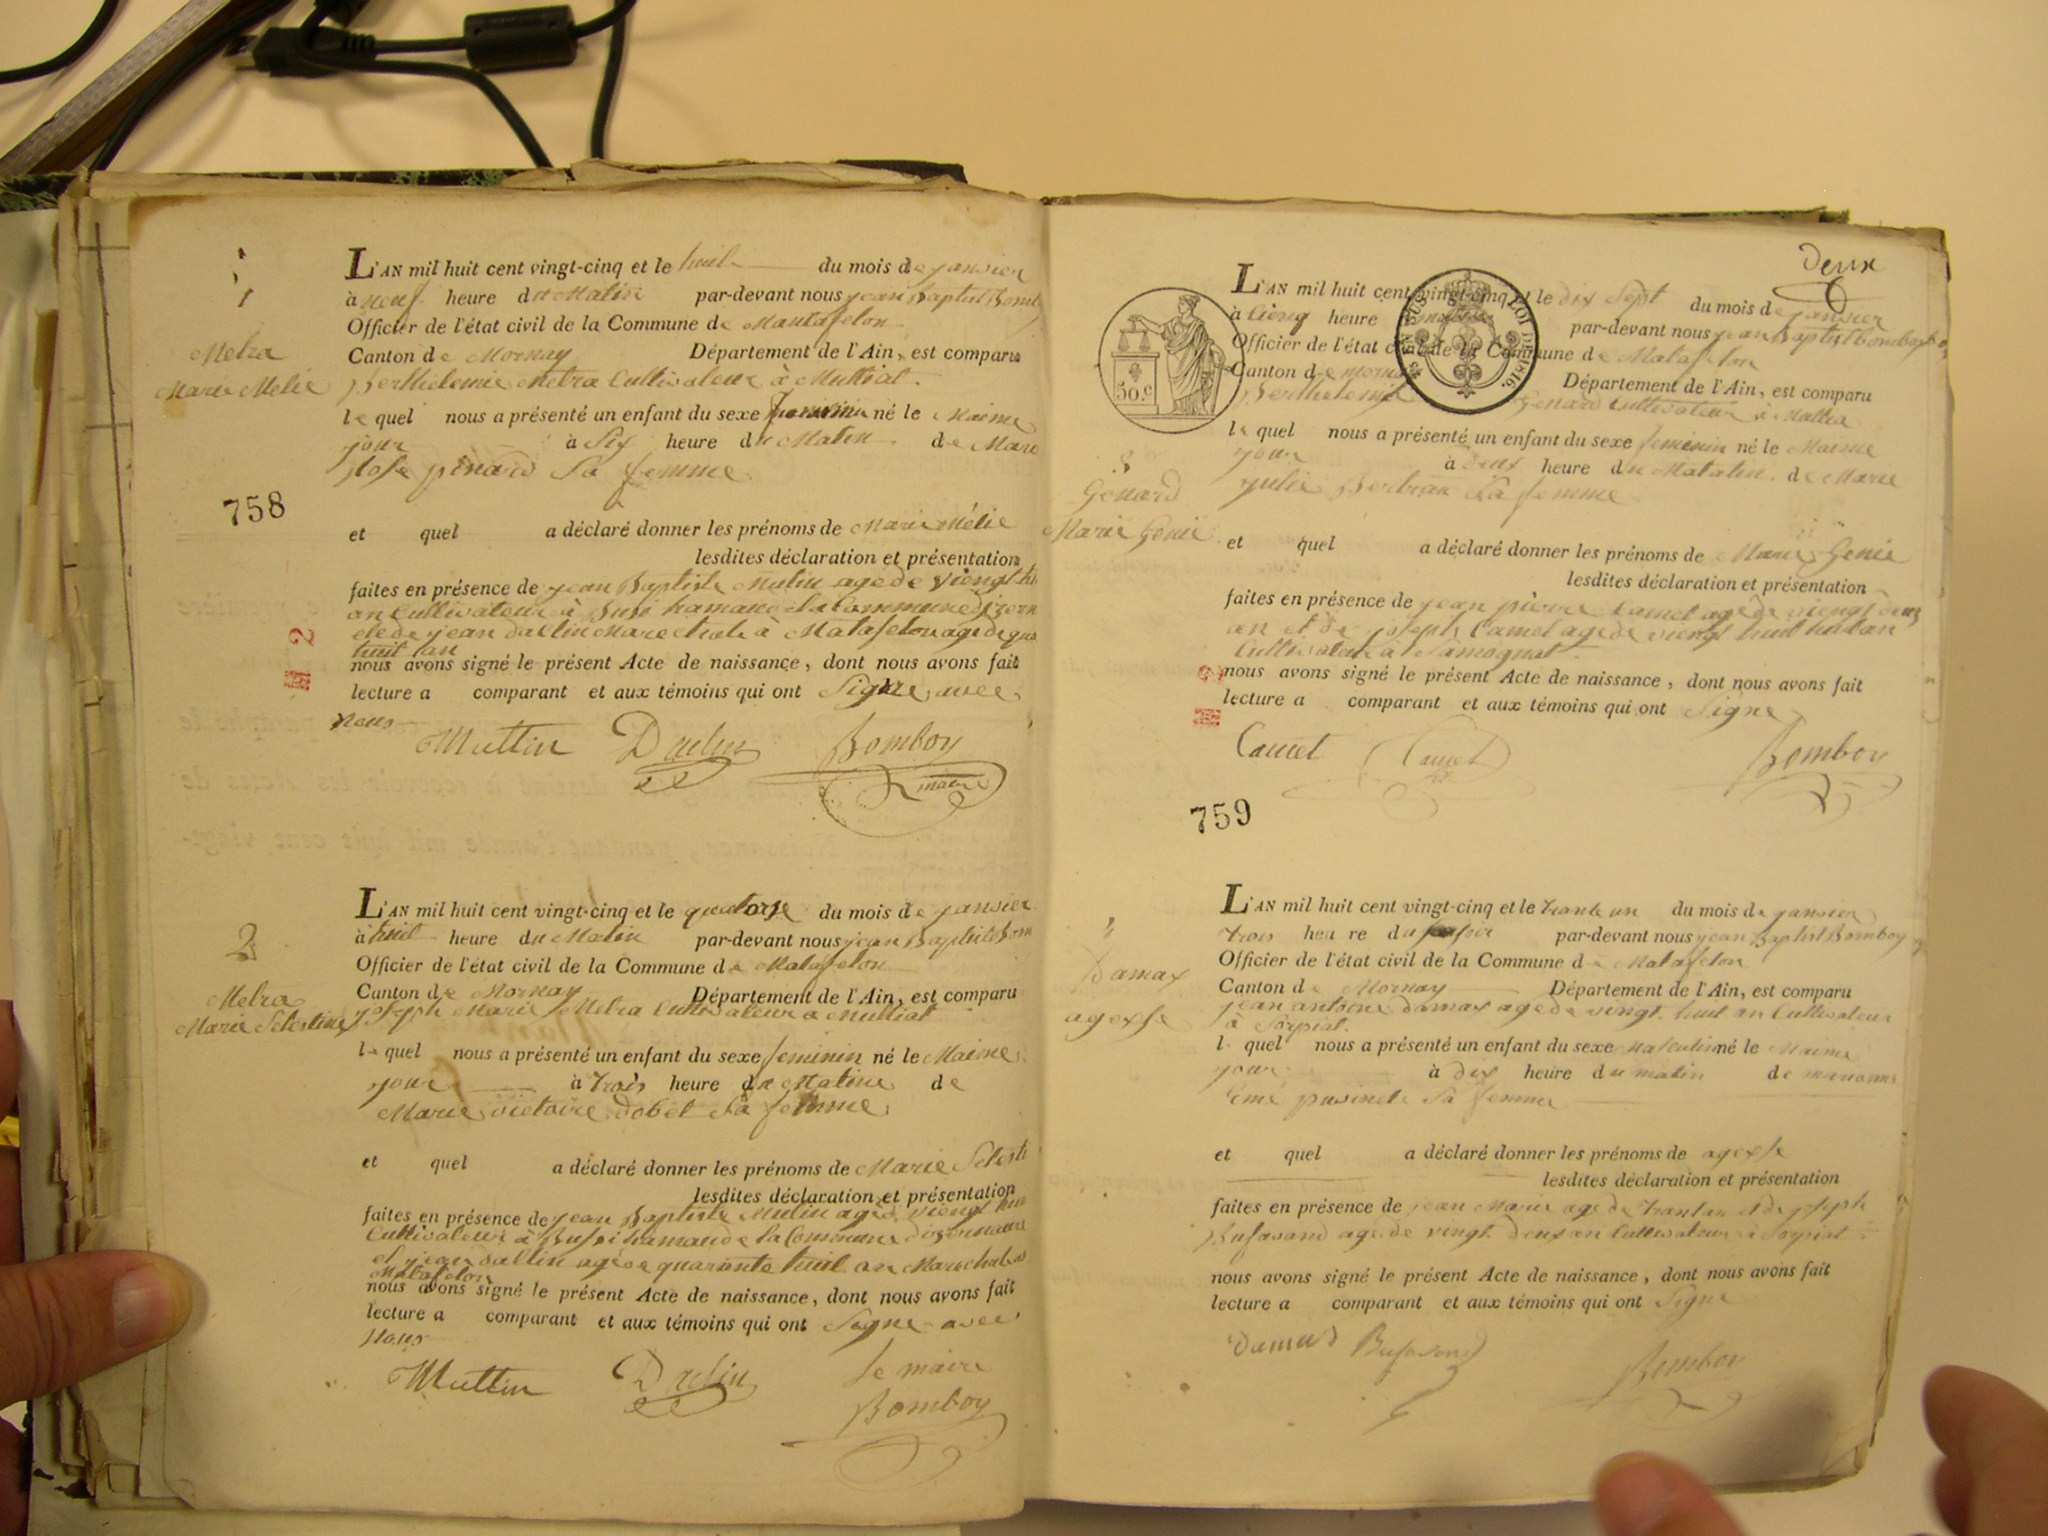 1
Metra
Marie Melie
L'AN mil huit cent vingt-cinq et le huit du mois de janvier
à neuf heure du Matin par-devant nous jean Baptist Bomb
Officier de l'état civil de la Commune de Mantafelon
Canton de Mornay Département de l'Ain, est comparu
Berthelemie Metra Cultivateur à Muttiat.
le quel nous a présenté un enfant du sexe feminin né le Maime
jour à Six heure du Matin de Marie
Rose pinard Sa femme
758
et quel a déclaré donner les prénoms de Marie Mélie
lesdites déclaration et présentation
faites en présence de jean Baptiste Mutin agé de viengt
an Cultivateur à la Commune
et de jean dallin Marechale à Matafelon agé de
huit an
nous avons signé le présent Acte de naissance, dont nous avons fait
lecture a comparant et aux témoins qui ont Signe avec
nous
Muttin Bomboy
maire
2
2
Metra
Marie Selestine
L'AN mil huit cent vingt-cinq et le quatorze du mois de janvier
à huit heure du Matin par-devant nous jean Baptist Bom
Officier de l'état civil de la Commune de Matafelon
Canton de Mornay Département de l'Ain, est comparu
joseph Marie Metra Cultivateur a Muttiat
le quel nous a présenté un enfant du sexe feminin né le Maime
jour à trois heure du Matine de
Marie victoire dobet Sa femme
et quel a déclaré donner les prénoms de Marie Selesti
lesdites déclaration et présentation
faites en présence de jean Baptiste Mutin agé de viengt huit
Cultivateur à la Commune
et jean dallin agé de quarante huit an Marechale
Matafelon
nous avons signé le présent Acte de naissance, dont nous avons fait
lecture a comparant et aux témoins qui ont Signe avec
Nous
Muttin le maire
Bomboy
deux
50.c
L'AN mil huit cent vingt-cinq et le dix Sept du mois de janvier
à Cienq heure par-devant nous jean Baptist
Officier de l'état civil de la Commune de Matafelon
LOI DE 1816.
Canton de Mornay Département de l'Ain, est comparu
Berthelemie Genard Cultivateur à
le quel nous a présenté un enfant du sexe feminin né le Maime
jour à deux heure du Matatin de Marie
julie Bertran Sa femme
3
Genard
Marie Genie
et quel a déclaré donner les prénoms de Marie Genie
lesdites déclaration et présentation
faites en présence de jean pierre Camet agé de viengt deux
an et de joseph Camet agé de viengt huit an
Cultivateur à Samognat
nous avons signé le présent Acte de naissance, dont nous avons fait
lecture a comparant et aux témoins qui ont Signe
Camet Camet Bomboy
759
Damax
agexse
L'AN mil huit cent vingt-cinq et le trante un du mois de janvier
trois heure du soir par-devant nous jean Baptist Bomboy
Officier de l'état civil de la Commune de Matafelon
Canton de Mornay Département de l'Ain, est comparu
jean antoine damax agé de vingt huit an Cultivateur
à Sorpiat.
l quel nous a présenté un enfant du sexe Masculin né le Maime
jour à dix heure du matin de
Sa femme
et quel a déclaré donner les prénoms de agexse
lesdites déclaration et présentation
faites en présence de jean Marie agé de trante an et de joseph
Bufavand agé de vingt deux an Cultivateur à Sorpiat
nous avons signé le présent Acte de naissance, dont nous avons fait
lecture a comparant et aux témoins qui ont Signe
Damas Bufavand Bomboy